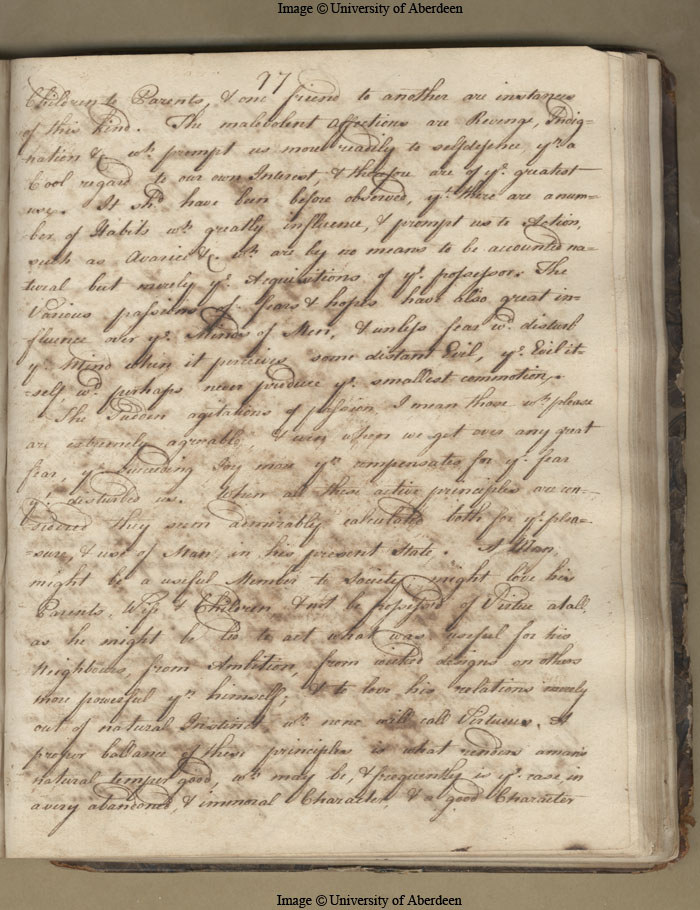 Image © University of Aberdeen
97
Children to Parents, & one friend to another are instances
of this kind. The malevolent affections are Revenge, Indig-
nation &c wh. prompt us more readily to selfdefence yn. a
Cool regard to our own Interest, & therefore are of ye. greatest
use. It shd. have been before observed, yt. there are a num-
ber of Habits wh. greatly influence, & prompt us to Action,
such as Avarice &c. wh. are by no means to be accounted na-
tural but merely ye. Acquisitions of ye. possessor. The
Various passions of fears & hopes have also great in-
fluence over ye. Minds of Men, & unless fear wd. disturb
ye. Mind when it perceives some distant Evil, ye. Evil it-
-self, wd. perhaps never produce ye. smallest commotion.
The Sudden agitations of passion, I mean those wh. please
are extremely agreable, & even when we get over any great
fear, ye. succeeding Joy more yn. compensates for ye. fear
yt. disturbed us. When all these active principles are con-
-sidered they seem admirably calculated both for ye. plea-
-sure, & use of Man, in his present state. A Man,
might be a useful Member to Society, might love his
Parents, Wife & Children & not be possessed of Virtue at all,
as he might be led to act what was useful for his
Neighbours, from Ambition, from wicked designs on others
more powerful yn. himself, & to love his relations merely
out of natural Instinct wh. none will call Virtuous. A
proper ballance of these principles is what renders a man's
natural temper good, wh. may be, & frequently is ye. case, in
a very abandoned, & immoral Character, & a good Character
Image © University of Aberdeen